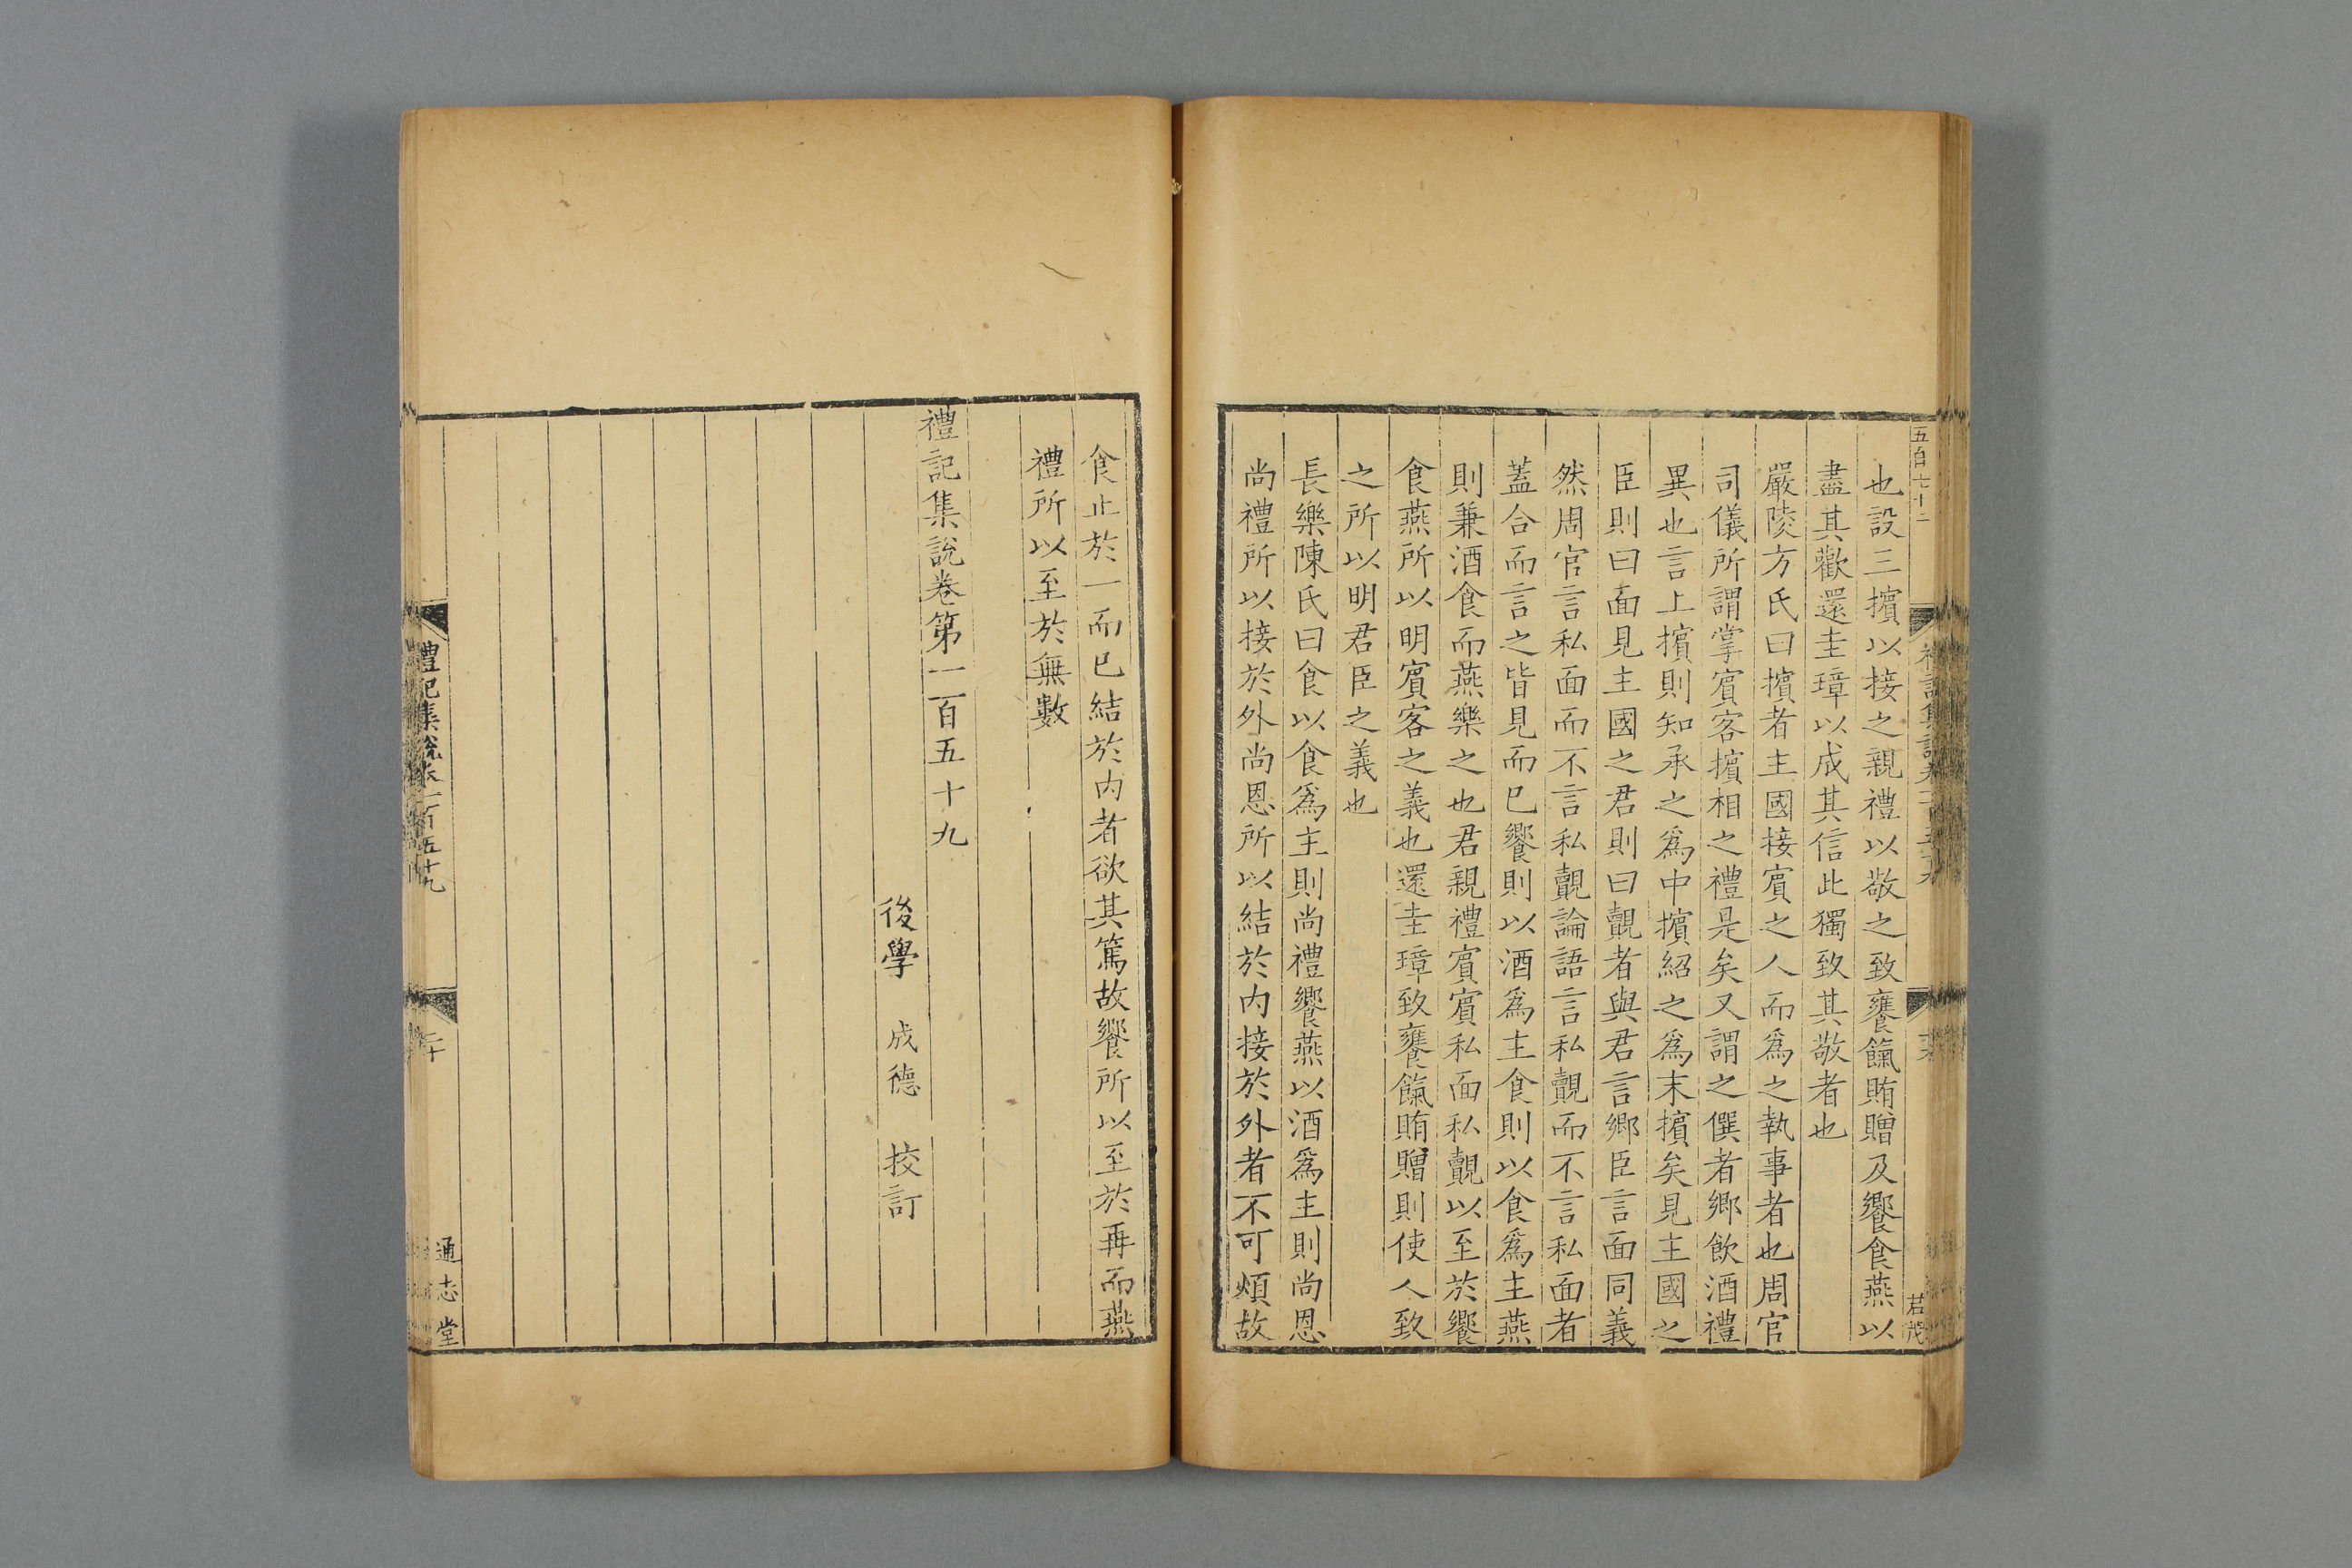 五百七十二
也設三擯以接之親禮以敬之致饔餼賄贈及饗食燕以
盡其歡還圭璋以成其信此獨致其敬者也
嚴陵方氏曰擯者主國接賔之人而爲之執事者也周官
司儀所謂掌賔客擯相之禮是矣又謂之僎者鄉飲酒禮
異也言上擯則知承之爲中擯紹之爲末擯矣見主國之
臣則曰面見主國之君則曰覿者與君言鄉臣言面同義
然周官言私面而不言私覿論語言私覿而不言私面者
蓋合而言之皆見而巳饗則以酒爲主食則以食爲主燕
則兼酒食而燕樂之也君親禮賔賔私面私覿以至於饗
食燕所以明賔客之義也還圭璋致饔餼賄贈則使人致
之所以明君臣之義也
長樂陳氏曰食以食爲主則尚禮饗燕以酒爲主則尚恩
尚禮所以接於外尚恩所以結於内接於外者不可煩故
君茂
食止於一而已結於内者欲其篤故饗所以至於再而燕
禮所以至於無數
禮記集說卷第一百五十九
後學 成德 挍訂
禮記集說卷一百五十九
二十
通志堂